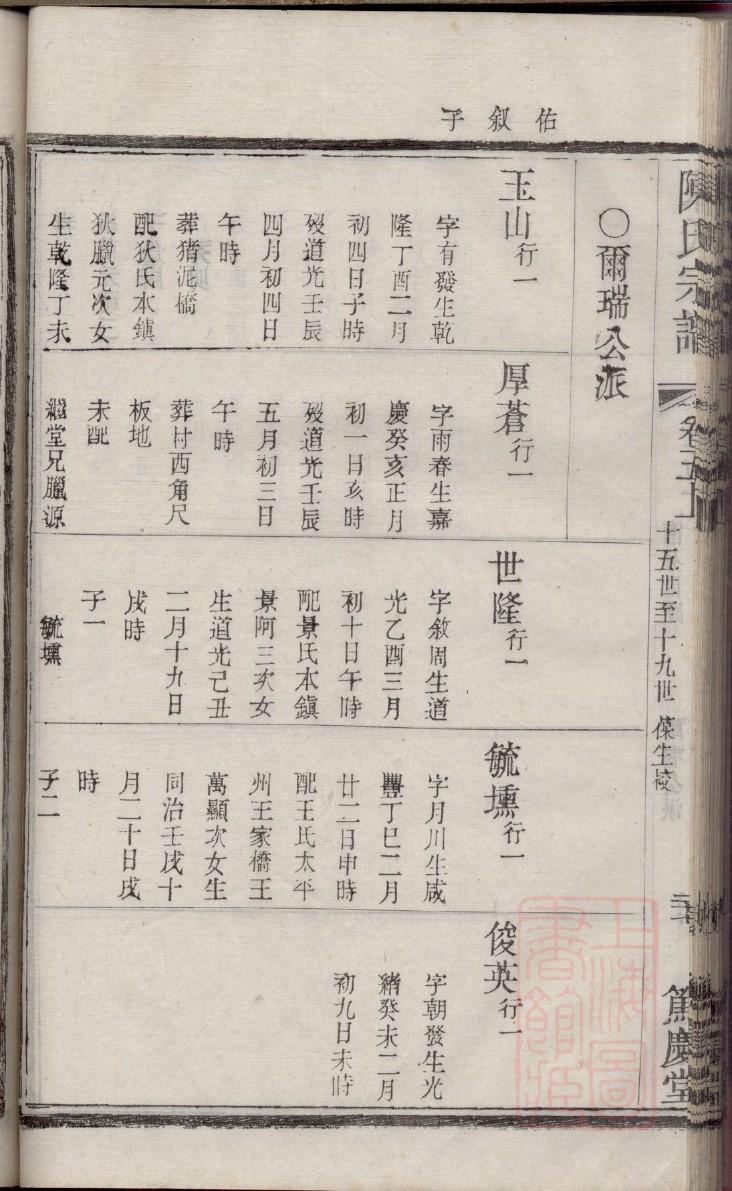 佑叙子
陳氏宗譜
卷五上
十五世至十九世
葆生校
篤慶堂
〇爾瑞公派
玉山行一
字有發生乾
隆丁酉二月
初四日子時
歿道光壬辰
四月初四日
午時
葬猪泥橋
配狄氏本鎮
狄臘元次女
生乾隆丁未
厚蒼行一
字雨春生嘉
慶癸亥正月
初一日亥時
歿道光壬辰
五月初三日
午時
葬村西角尺
板地
未配
繼堂兄臘源
世隆行一
字敘周生道
光乙酉三月
初十日午時
配景氏本鎮
景阿三次女
生道光己丑
二月十九日
戌時
子一
毓壎
毓壎行一
字月川生咸
豐丁巳二月
廿二日申時
配王氏太平
州王家橋王
萬顯次女生
同治壬戌十
月二十日戌
時
子二
俊英行一
字朝發生光
緒癸未二月
初九日未時
上海圖
書館藏